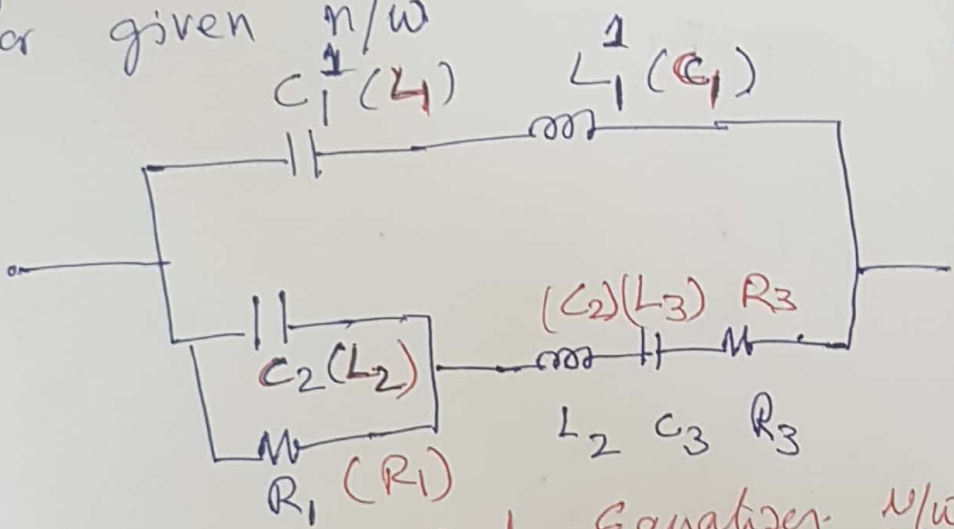 given n/w
C₁¹ (L₁) L₁¹ (C₁)
(C₂)(L₃) R₃
C₂(L₂)
L₂ C₃ R₃
R₁ (R₁)
Equalizer N/w